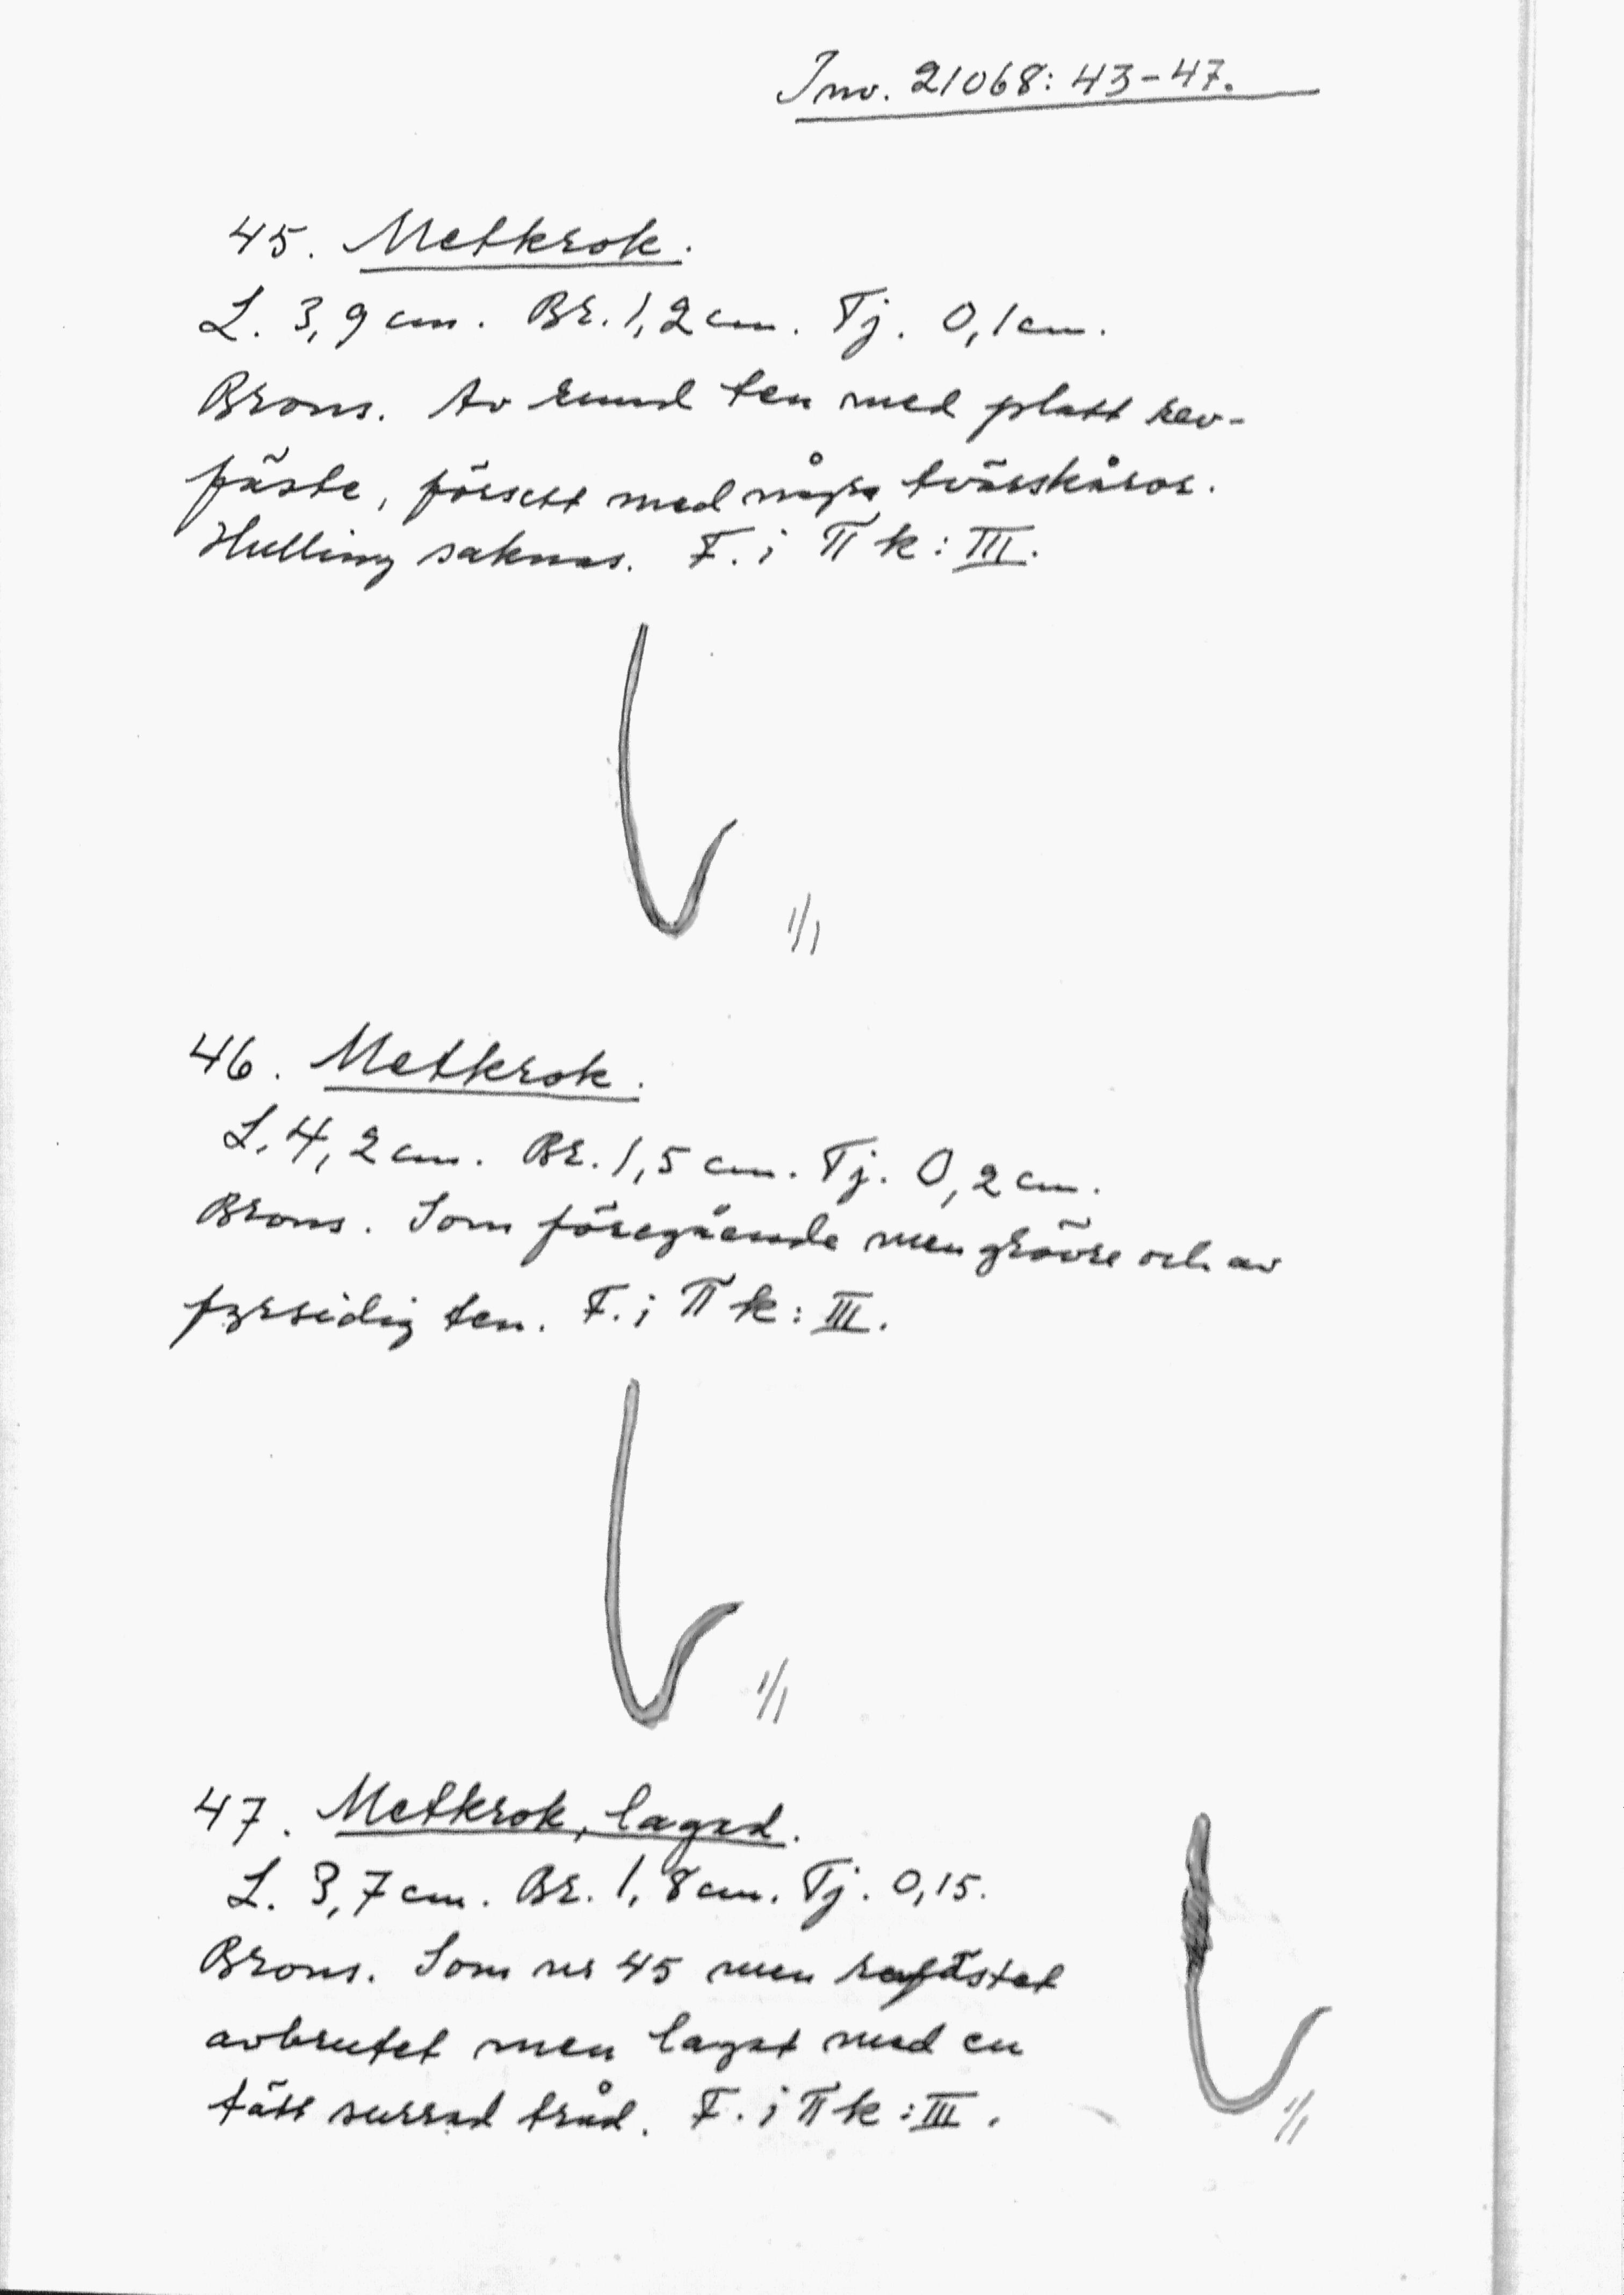 Inv. 21068: 43-47.
45. Metkrok.
L. 3,9 cm. Br. 1,2 cm. Tj. 0,1 cm.
Brons. Av rund ten med platt rev-
fäste, försett med några tvärskåror.
Hulling saknas. F. i Π k: III.
1/1
46. Metkrok.
L. 4,2 cm. Br. 1,5 cm. Tj. 0,2 cm.
Brons. Som föregående men grövre och av
fyrsidig ten. F. i Π k: III.
1/1
47. Metkrok, lagad.
L. 3,7 cm. Br. 1,8 cm. Tj. 0,15.
Brons. Som nr 45 men revfästet
avbrutet men lagat med en
tätt surrad tråd. F. i Π k: III.
1/1